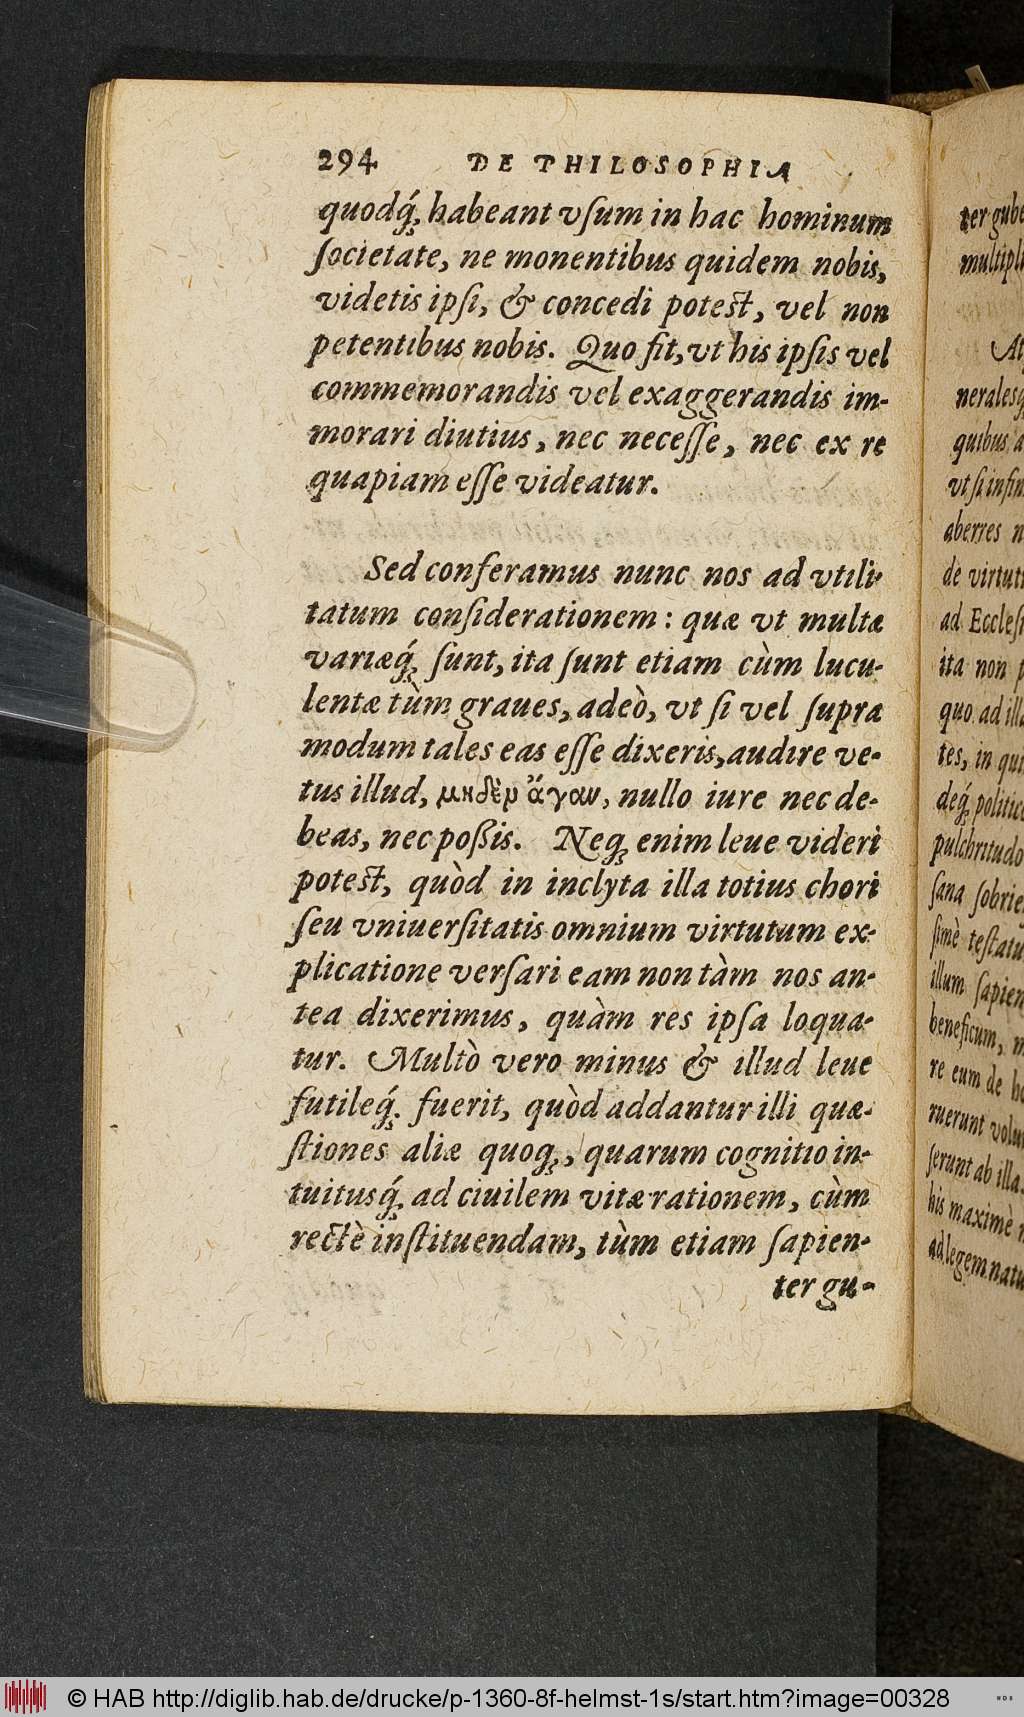 294 DE THILOSOPHIA
quodq́; habeant vſum in hac hominum
ſocietate, ne monentibus quidem nobis,
videtis ipſi, & concedi poteſt, vel non
petentibus nobis. Quo fit, vt his ipſis vel
commemorandis vel exaggerandis im-
morari diutius, nec neceſſe, nec ex re
quapiam eſſe videatur.
Sed conferamus nunc nos ad vtili-
tatum conſiderationem: quæ vt multæ
variæq́; ſunt, ita ſunt etiam cùm lucu-
lentæ tùm graues, adeò, vt ſi vel ſupra
modum tales eas eſſe dixeris, audire ve-
tus illud, μηδὲν ἄγαν, nullo iure nec de-
beas, nec poßis. Neq; enim leue videri
poteſt, quòd in inclyta illa totius chori
ſeu vniuerſitatis omnium virtutum ex-
plicatione verſari eam non tàm nos an-
tea dixerimus, quàm res ipſa loqua-
tur. Multò vero minus & illud leue
futileq́; fuerit, quòd addantur illi quæ-
ſtiones aliæ quoq;, quarum cognitio in-
tuitusq́; ad ciuilem vitæ rationem, cùm
rectè inſtituendam, tùm etiam ſapien-
ter gu-
ter gube
multipli
neralesq
quibus
vt ſi infin
aberres
de virtuti
ad Eccleſi
ita non
quo ad illa
tes, in qui
deq́; politic
pulchritudo
ſana ſobrie
ſimè teſtatu
illum ſapien
beneficum,
re eum de ho
ruerunt volu
ſerunt ab illa
his maximè
ad legem natu
© HAB http://diglib.hab.de/drucke/p-1360-8f-helmst-1s/start.htm?image=00328